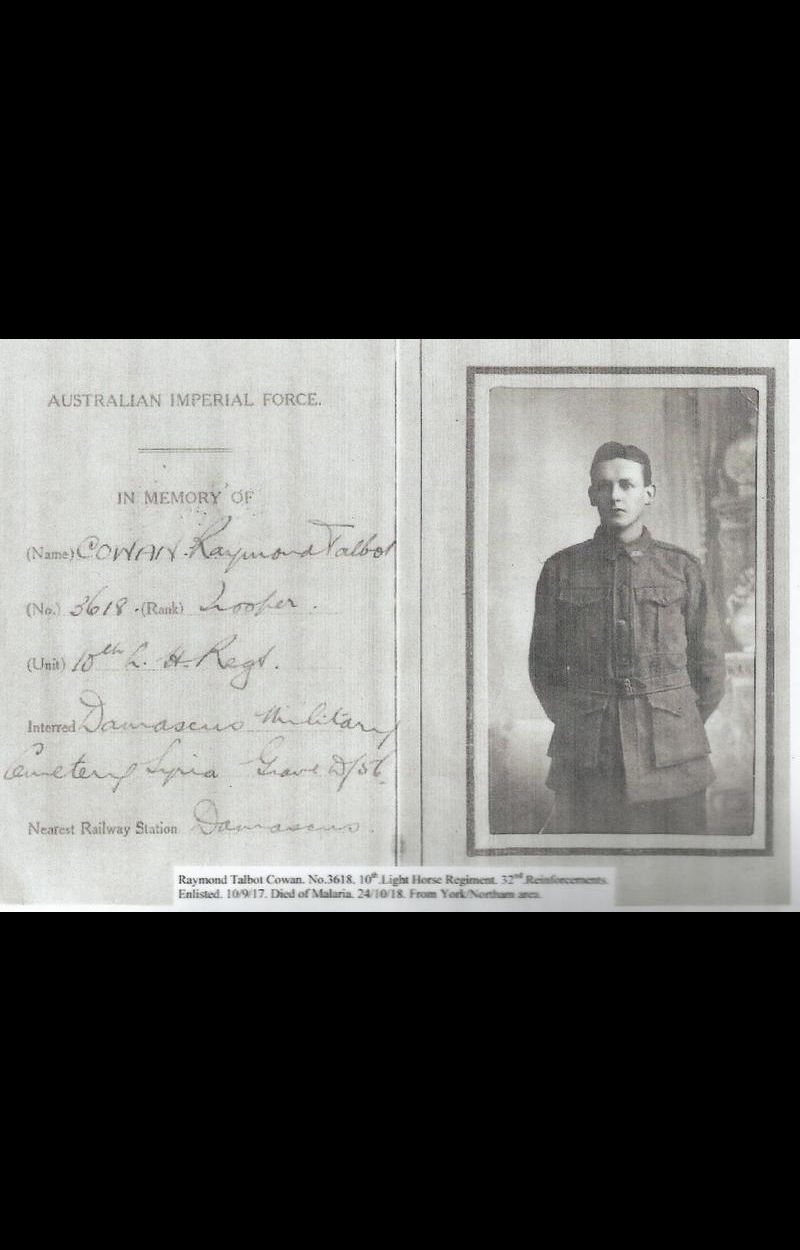 AUSTRALIAN IMPERIAL FORCE.
IN MEMORY OF
(Name) COWAN. Raymond Talbot
(No.) 3618. (Rank) Trooper.
(Unit) 10th L. H. Regt.
Interred Damascus Military
Cemetery Syria Grave D/56
Nearest Railway Station Damascus.
Raymond Talbot Cowan. No.3618. 10th Light Horse Regiment. 32nd Reinforcements.
Enlisted. 10/9/17. Died of Malaria. 24/10/18. From York/Northam area.